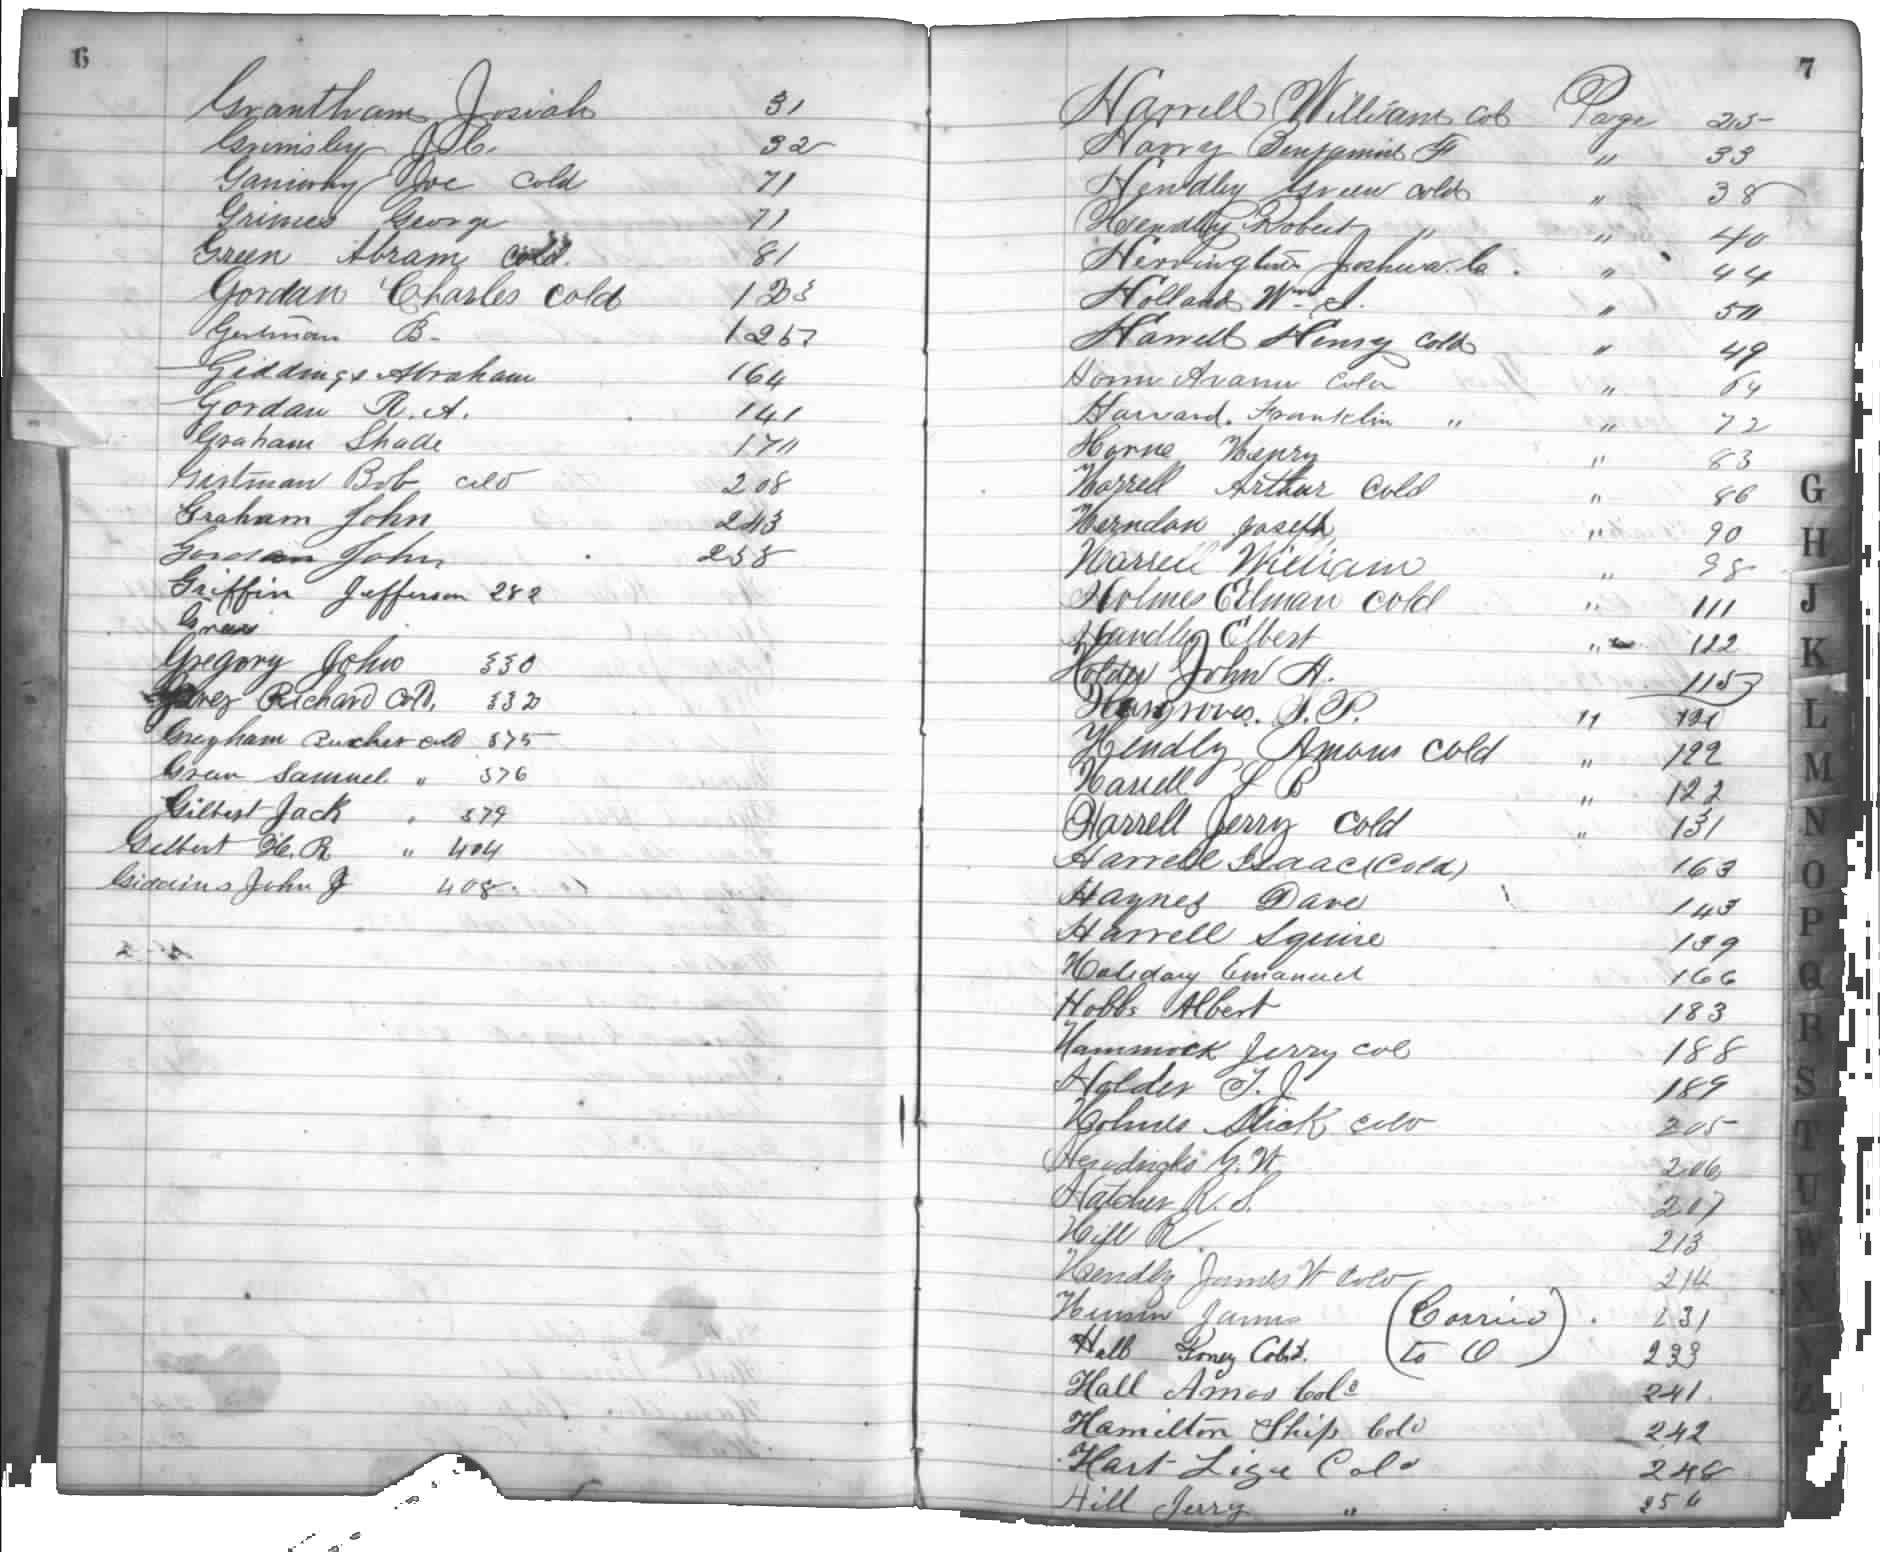 6
Grantham Josiah 31
Grimsley J. C. 32
Ganiway Joe Cold 71
Grimes George 71
Green Abram Cold. 81
Gordan Charles Cold 123
B. 1257
Giddings Abraham 164
Gordan R. A. 141
Graham Shade
Girtman Bob cold 208
Graham John 243
Gordan John 258
Griffin Jefferson 282
Gregory John 330
Richard Cold.
Cold 375
Samuel " 376
Gilbert Jack " 379
Gilbert H. R " 404
Giddins John J 408
7
Harrell William Col Page 25
Harry Benjamin F " 33
Hendley Green Cold " 38
Hendley Robert " " 40
Herrington Joshua C. " 44
Holland Wm "
Harrell Henry Cold " 49
" 64
Harvard. Franklin " " 72
Horne Henry " 83
Harrell Arthur Cold " 86
Herndon Joseph " 90
Harrell William " 98
Holmes Elman Cold " 111
Handley Elbert " 122
Holder John H. 115
Hargroves. "
Hendly Amous Cold " 122
Harrell " 122
Harrell Jerry Cold " 131
Harrell Isaac (Cold) 163
Haynes Dave 143
Harrell Squire 139
Holiday Emanuel 166
Hobbs Albert 183
Hammock Jerry Col 188
Holder T. J. 189
Holmes Dick Cold 205
Hendricks G. W. 206
Hatcher R. S. 207
Hill R 213
Hendly James W Cold 214
James (Carried 231
Hall Cold. to O) 233
Hall Amos Cold 241
Hamilton Ship Cold 242
Hart Lige Cold 248
Hill Jerry " 256
G
H
J
K
L
M
N
O
P
Q
R
S
T
U
W
X
Y
Z